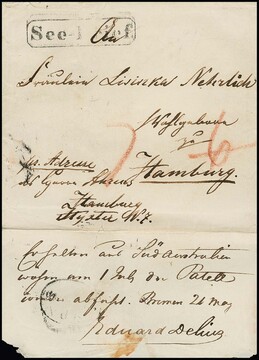 See-Brief
An
Fräulein Lisinka Nehrlich
Wohlgeboren
zu
Hamburg.
pr. Adresse
des Herrn
Hamburg
No 7.
Erhalten aus Südaustralien
wann am 1 July der
wieder abfährt. Bremen 26 May
Eduard Delius